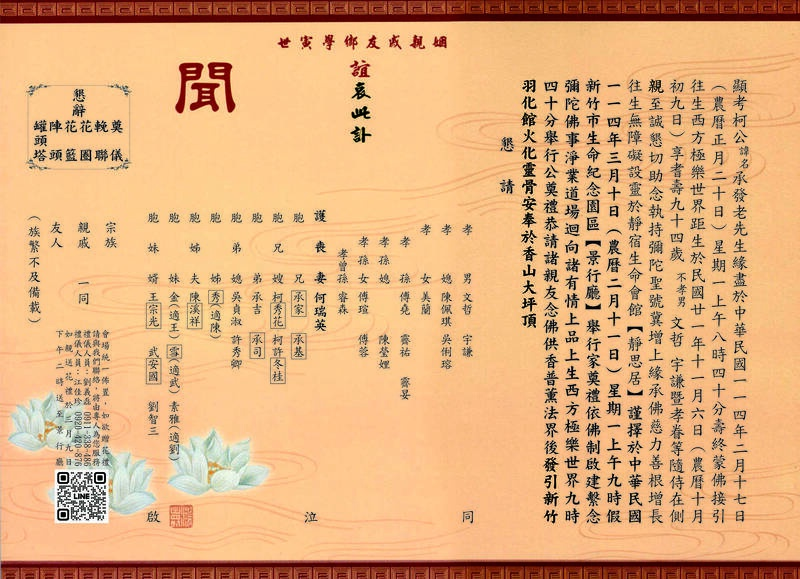 顯考柯公諱名承發老先生緣盡於中華民國一一四年二月十七日
（農曆正月二十日）星期一上午八時四十分壽終蒙佛接引
往生西方極樂世界距生於民國廿一年十一月六日（農曆十月
初九日）享耆壽九十四歲不孝男文哲宇謙暨孝眷等隨侍在側
親至誠懇切助念執持彌陀聖號冀增上緣承佛慈力善根增長
往生無障礙設靈於靜宿生命會館【靜思居】謹擇於中華民國
一一四年三月十日（農曆二月十一日）星期一上午九時假
新竹市生命紀念園區【景行廳】舉行家奠禮依佛制啟建繫念
彌陀佛事淨業道場迴向諸有情上品上生西方極樂世界九時
四十分舉行公奠禮恭請諸親友念佛供香普薰法界後發引新竹
羽化館火化靈骨安奉於香山大坪頂
懇請
世寅學鄉友戚親姻
誼哀此訃
聞
懇辭
奠儀
輓聯
花圈
花籃
陣頭
罐頭塔
孝男 文哲 宇謙
孝媳 陳佩琪 吳俐瑢
孝女 美蘭
孝孫 傅堯 霽祐 霽妘
孝孫媳 陳瑩娌
孝孫女 傅瑄 傅蓉
孝曾孫 睿森
護喪妻 何瑞英
胞兄 承家 承基
胞兄嫂 柯秀花 柯許冬桂
胞弟 承吉 承司
胞弟媳 吳貞淑 許秀卿
胞姊 秀（適陳）
胞姊夫 陳溪祥
胞妹 金（適王） 雪（適武） 素雅（適劉）
胞妹婿 王宗光 武安國 劉智三
宗族
親戚 一同
友人
（族繁不及備載）
同
泣
啟
會場統一佈置，如欲贈花禮
請與我們聯絡，將由專人為您服務
禮儀人員：劉義磊 0911-388-486
禮儀人員：江佳珍 0920-420-876
如親送花禮於三月九日
下午二時送至景行廳
LINE